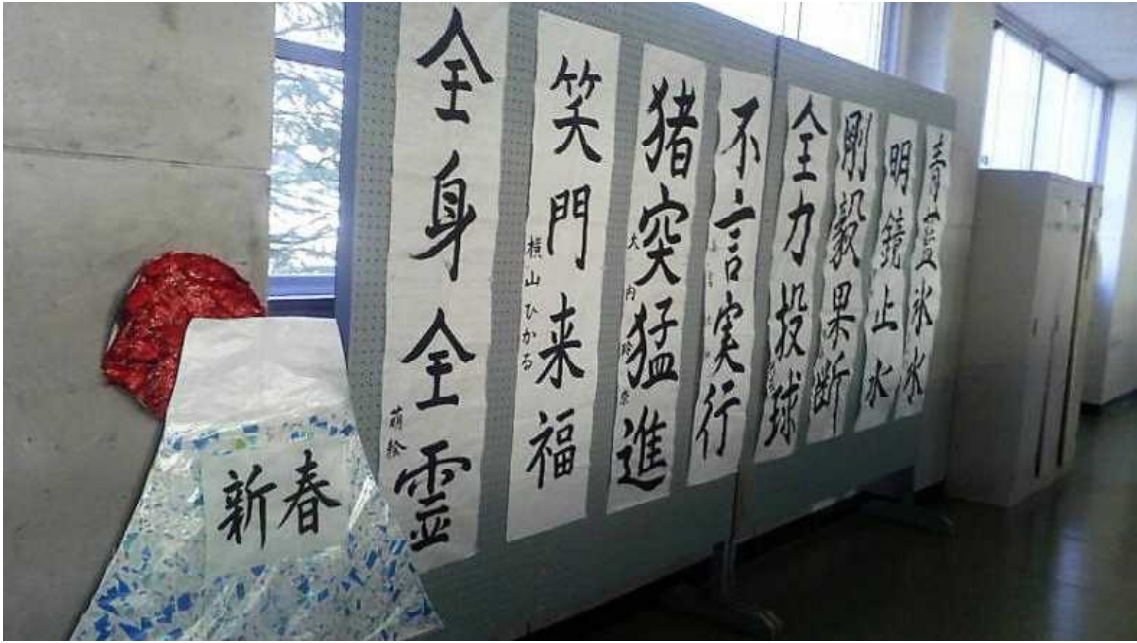 全身全霊
萌絵
笑門来福
横山ひかる
猪突猛進
不言実行
全力投球
剛毅果断
明鏡止水
青藍氷水
新春